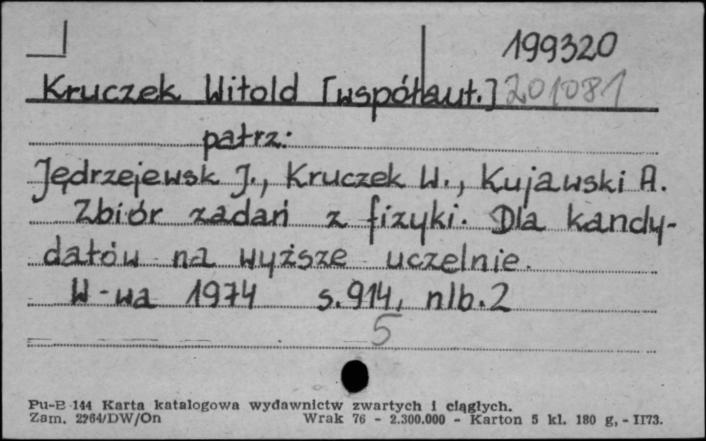 199320
Kruczek Witold [współaut.] 201081
patrz:
Jędrzejewsk J., Kruczek W., Kujawski A.
Zbiór zadań z fizyki. Dla kandy-
datów na wyższe uczelnie.
W-wa 1974 s.914, nlb.2
5
Pu-B 144 Karta katalogowa wydawnictw zwartych i ciągłych.
Zam. 2264/DW/On Wrak 76 - 2.300.000 - Karton 5 kl. 180 g, - II73.